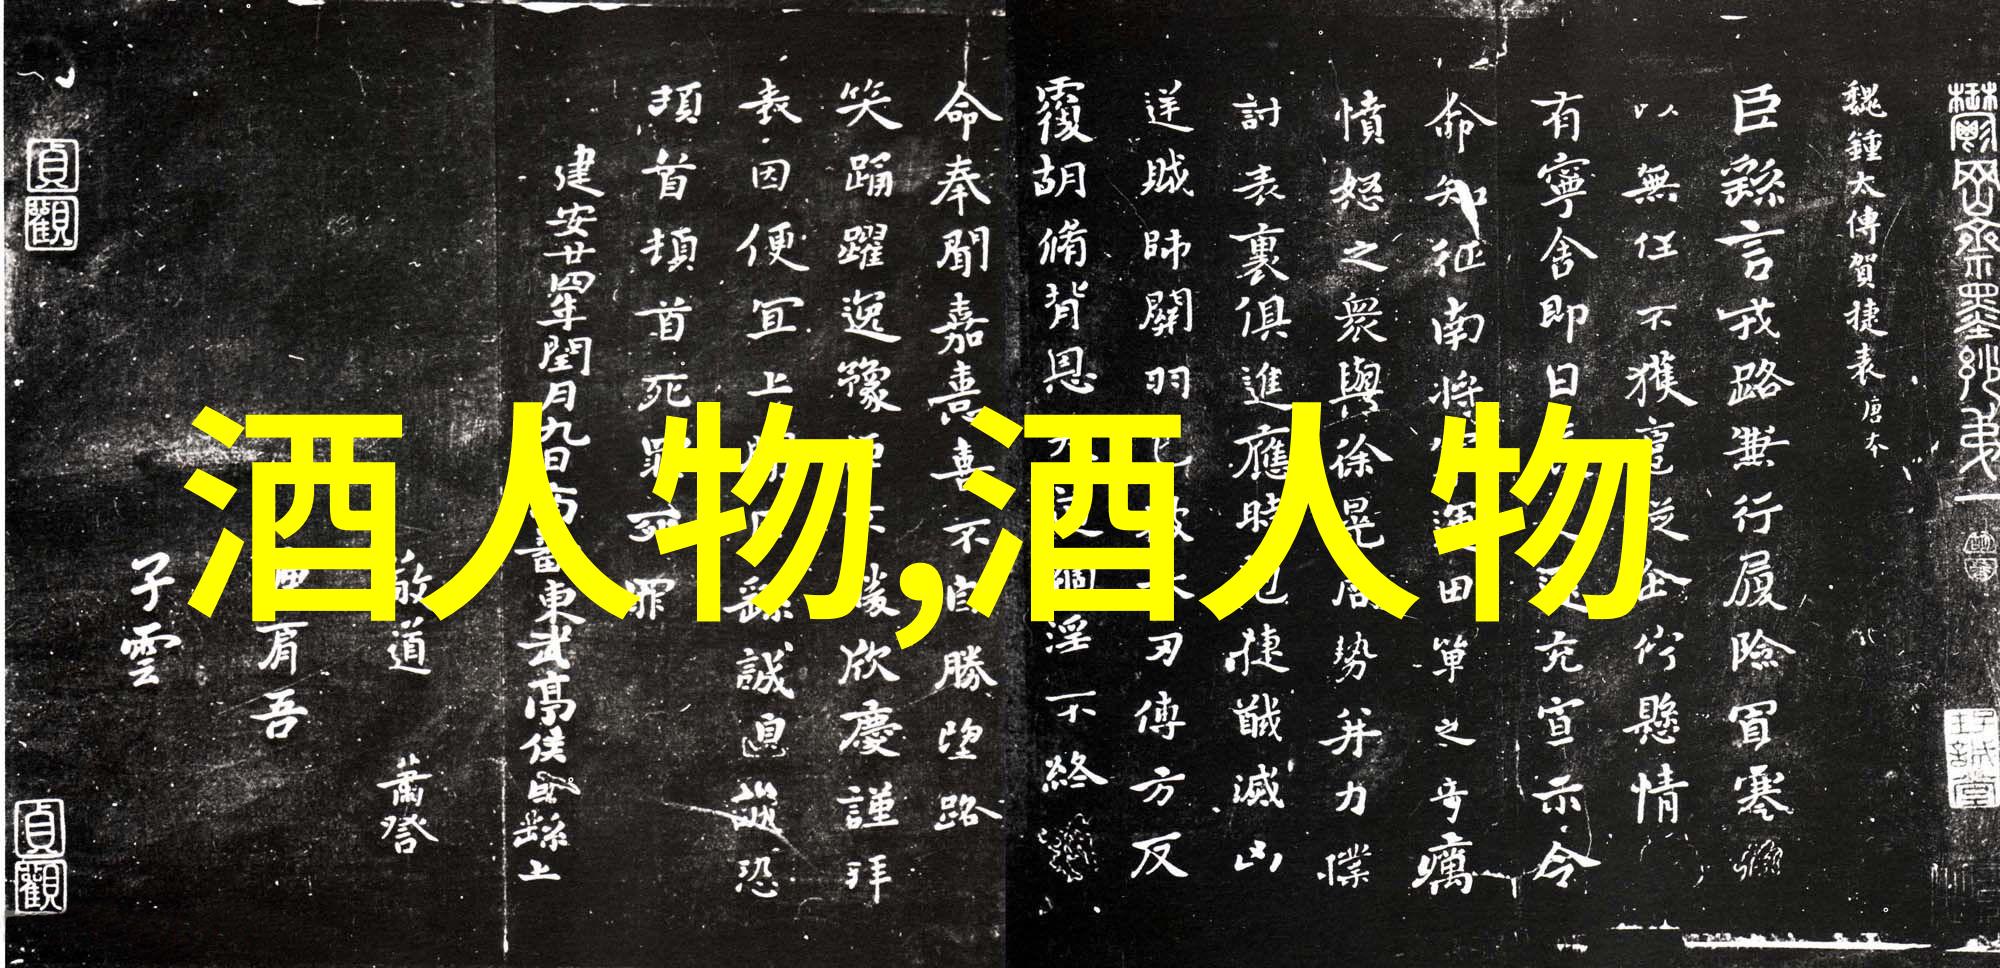 酒人物,酒人物
鬱岡齋墨妙第一
魏鍾太傅賀捷表唐本
臣繇言戎路兼行履險冒寒
以無任不獲扈從企佇懸情
有寧舍即日充宣示令
命知征南將運田單之奇厲
憤怒之眾與徐晃同勢并力撲
討表裏俱進應時克捷馘滅凶
逆賊帥關羽已被矢刃傅方反
覆胡脩背恩淫不終
命奉聞嘉憙喜不自勝望路
笑踊躍逸豫不勝欣慶謹拜
表因便宜上聞臣繇誠惶誠恐
頓首頓首死罪死罪
建安廿四年閏月九日南蕃東武亭侯臣繇上
敬道 蕭誉
有吾
子雲
貞觀
貞觀